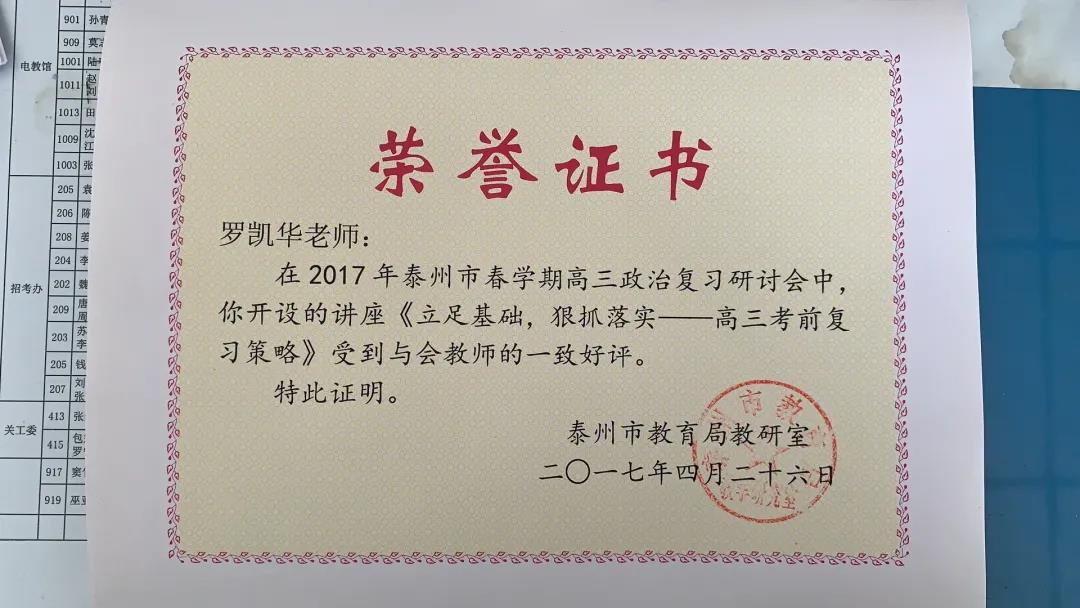 荣誉证书
罗凯华老师：
在 2017 年泰州市春学期高三政治复习研讨会中，
你开设的讲座《立足基础，狠抓落实——高三考前复
习策略》受到与会教师的一致好评。
特此证明。
泰州市教育局教研室
二〇一七年四月二十六日
电教馆
901 孙青
909 莫志
1001 陆
1011 赵
刘
1013 田
1009 沈
江
1003 张
招考办
205 袁
206 陈
208 姜
204 李
202 魏
209 唐
周
203 苏
李
205 钱
207 刘
张
关工委
413 张
415 包
罗
917 窦
919 巫